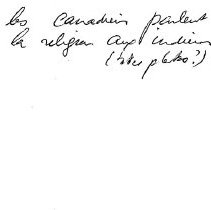 les canadiens parlent
la religion aux indiens
(têtes plates?)